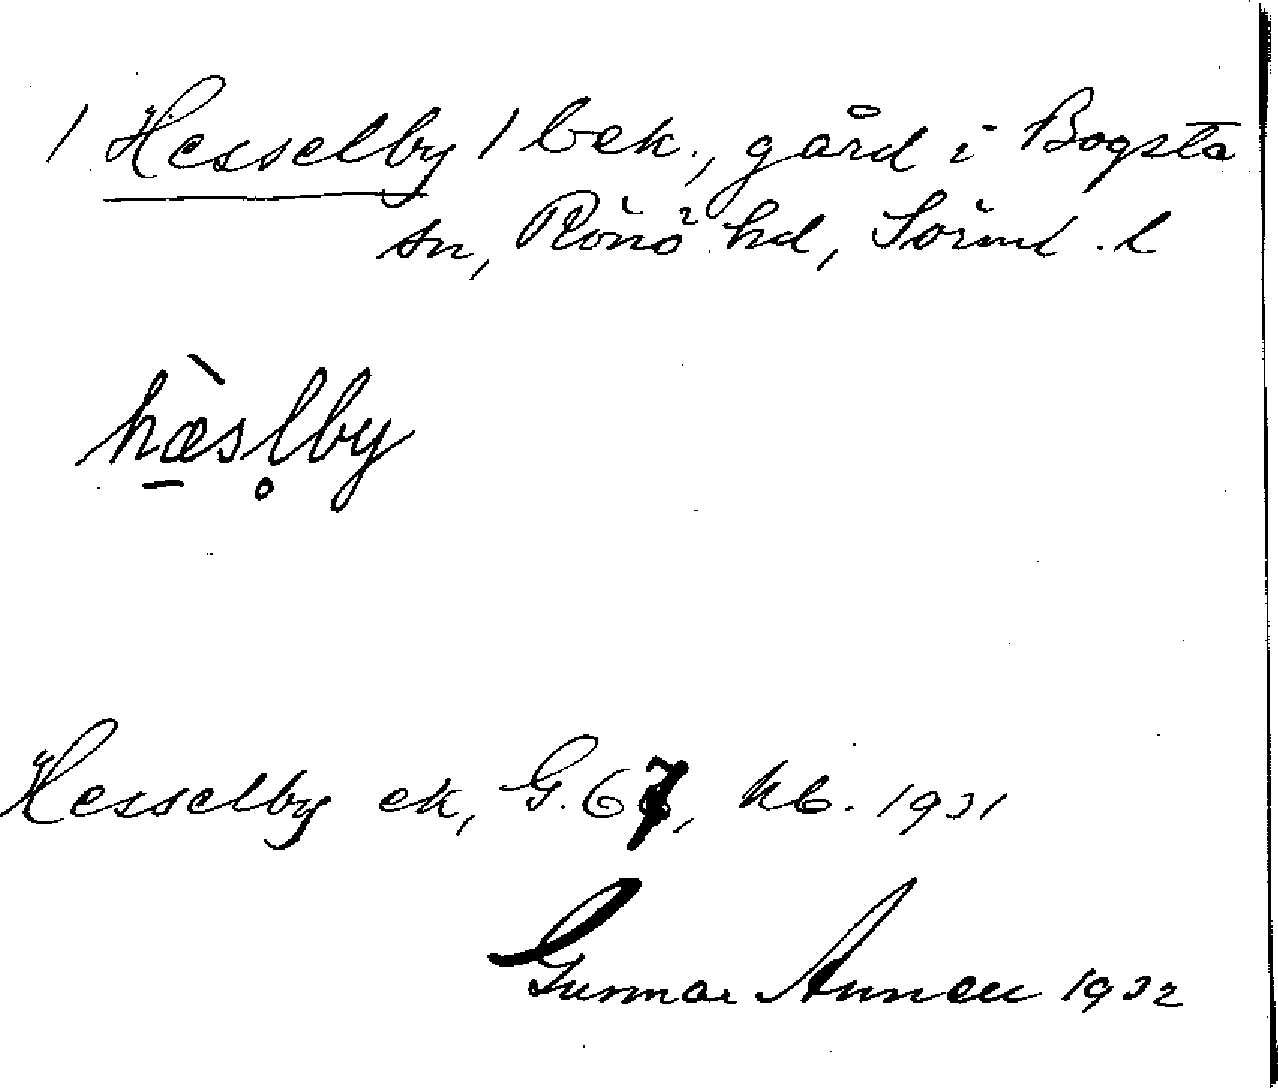 / Hesselby / bek., gård i Bogsta
sn, Rönö hd, Sörml. l
hæ̱̀sl̥by
Hesselby ek, G. 67, kb. 1931
Gunnar 1932